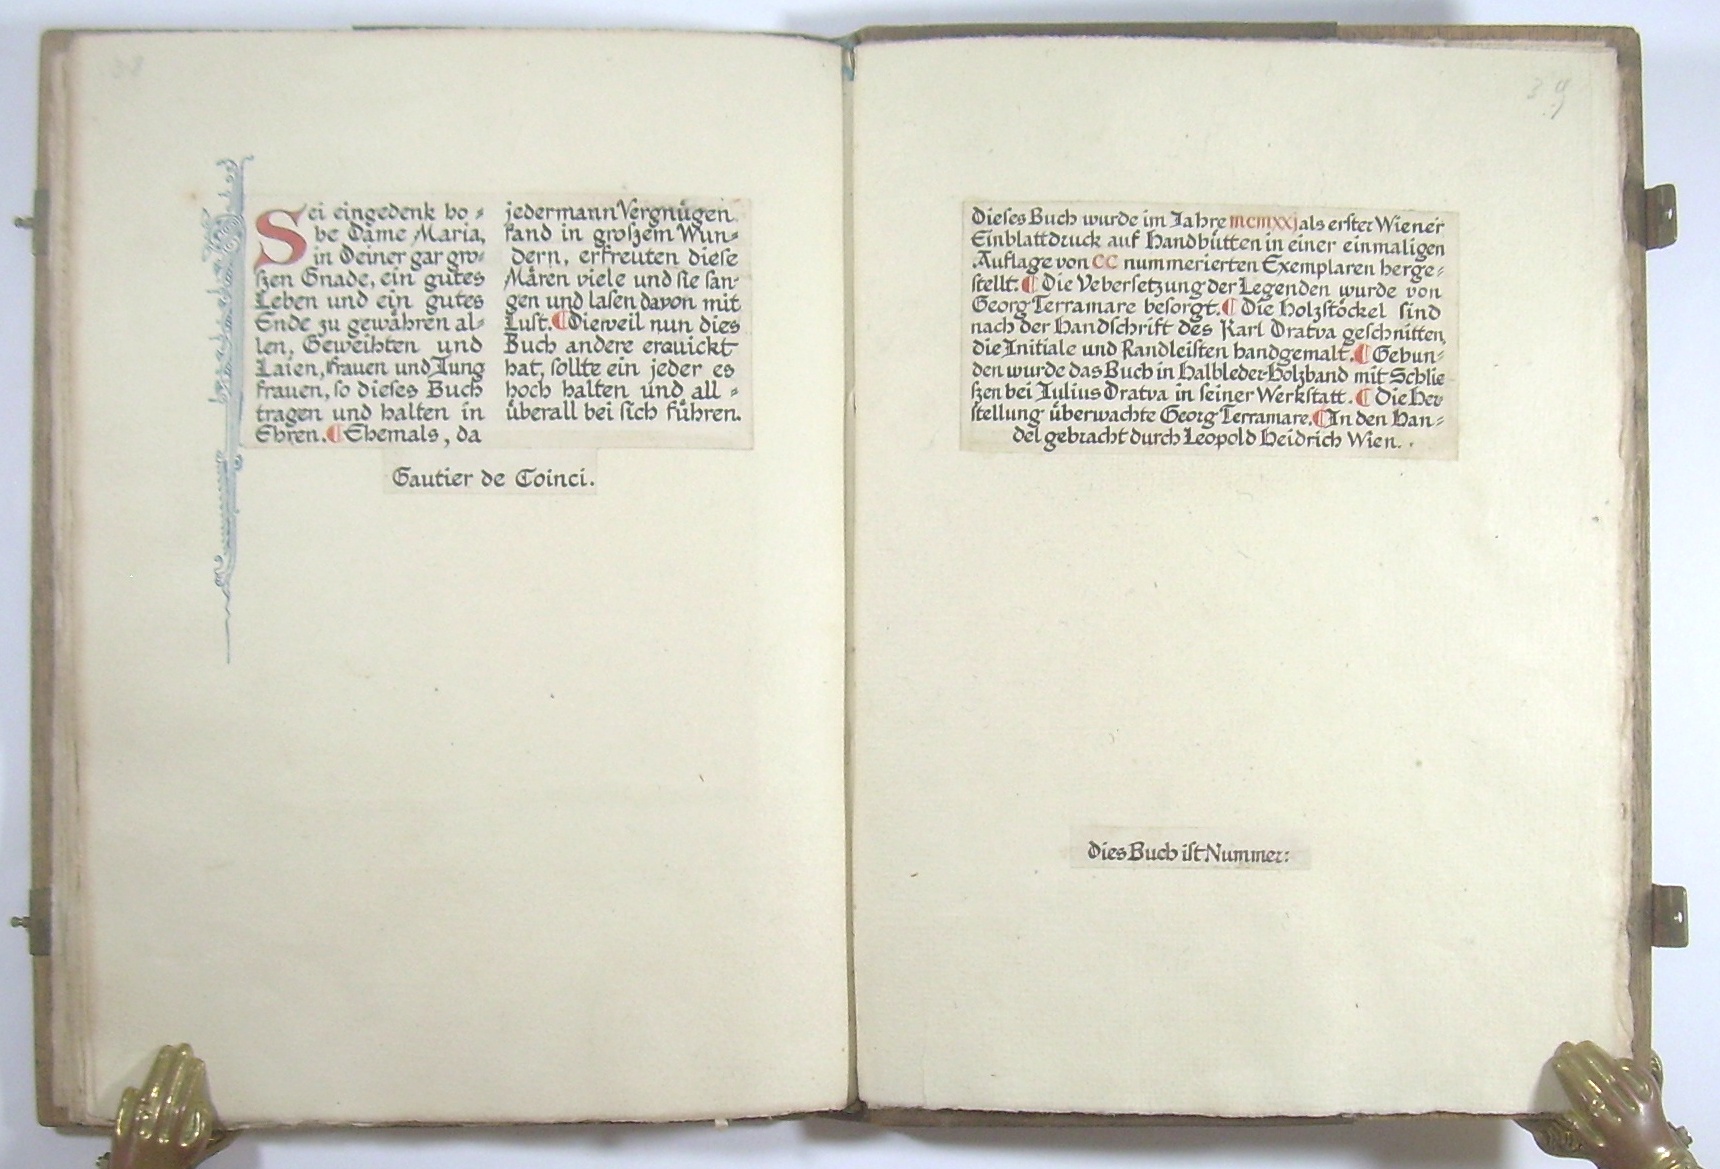 38
Sei eingedenk ho=
he Dame Maria,
in Deiner gar gro=
szen Gnade, ein gutes
Leben und ein gutes
Ende zu gewähren al=
len, Geweihten und
Laien, Frauen und Jung
frauen, so dieses Buch
tragen und halten in
Ehren. ¶ Ehemals, da
jedermann Vergnügen
fand in groszem Wun=
dern, erfreuten diese
Mären viele und sie san=
gen und lasen davon mit
Lust. ¶ Dieweil nun dies
Buch andere erquickt
hat, sollte ein jeder es
hoch halten und all =
überall bei sich führen.
Gautier de Coinci.
39
Dieses Buch wurde im Jahre mcmxxj als erster Wiener
Einblattdruck auf Handbütten in einer einmaligen
Auflage von CC nummerierten Exemplaren herge=
stellt. ¶ Die Uebersetzung der Legenden wurde von
Georg Terramare besorgt. ¶ Die Holzstöckel sind
nach der Handschrift des Karl Dratva geschnitten,
die Initiale und Randleisten handgemalt. ¶ Gebun=
den wurde das Buch in Halbleder-Holzband mit Schlie
szen bei Julius Dratva in seiner Werkstatt. ¶ Die Her
stellung überwachte Georg Terramare. ¶ In den Han=
del gebracht durch Leopold Heidrich Wien.
Dies Buch ist Nummer: